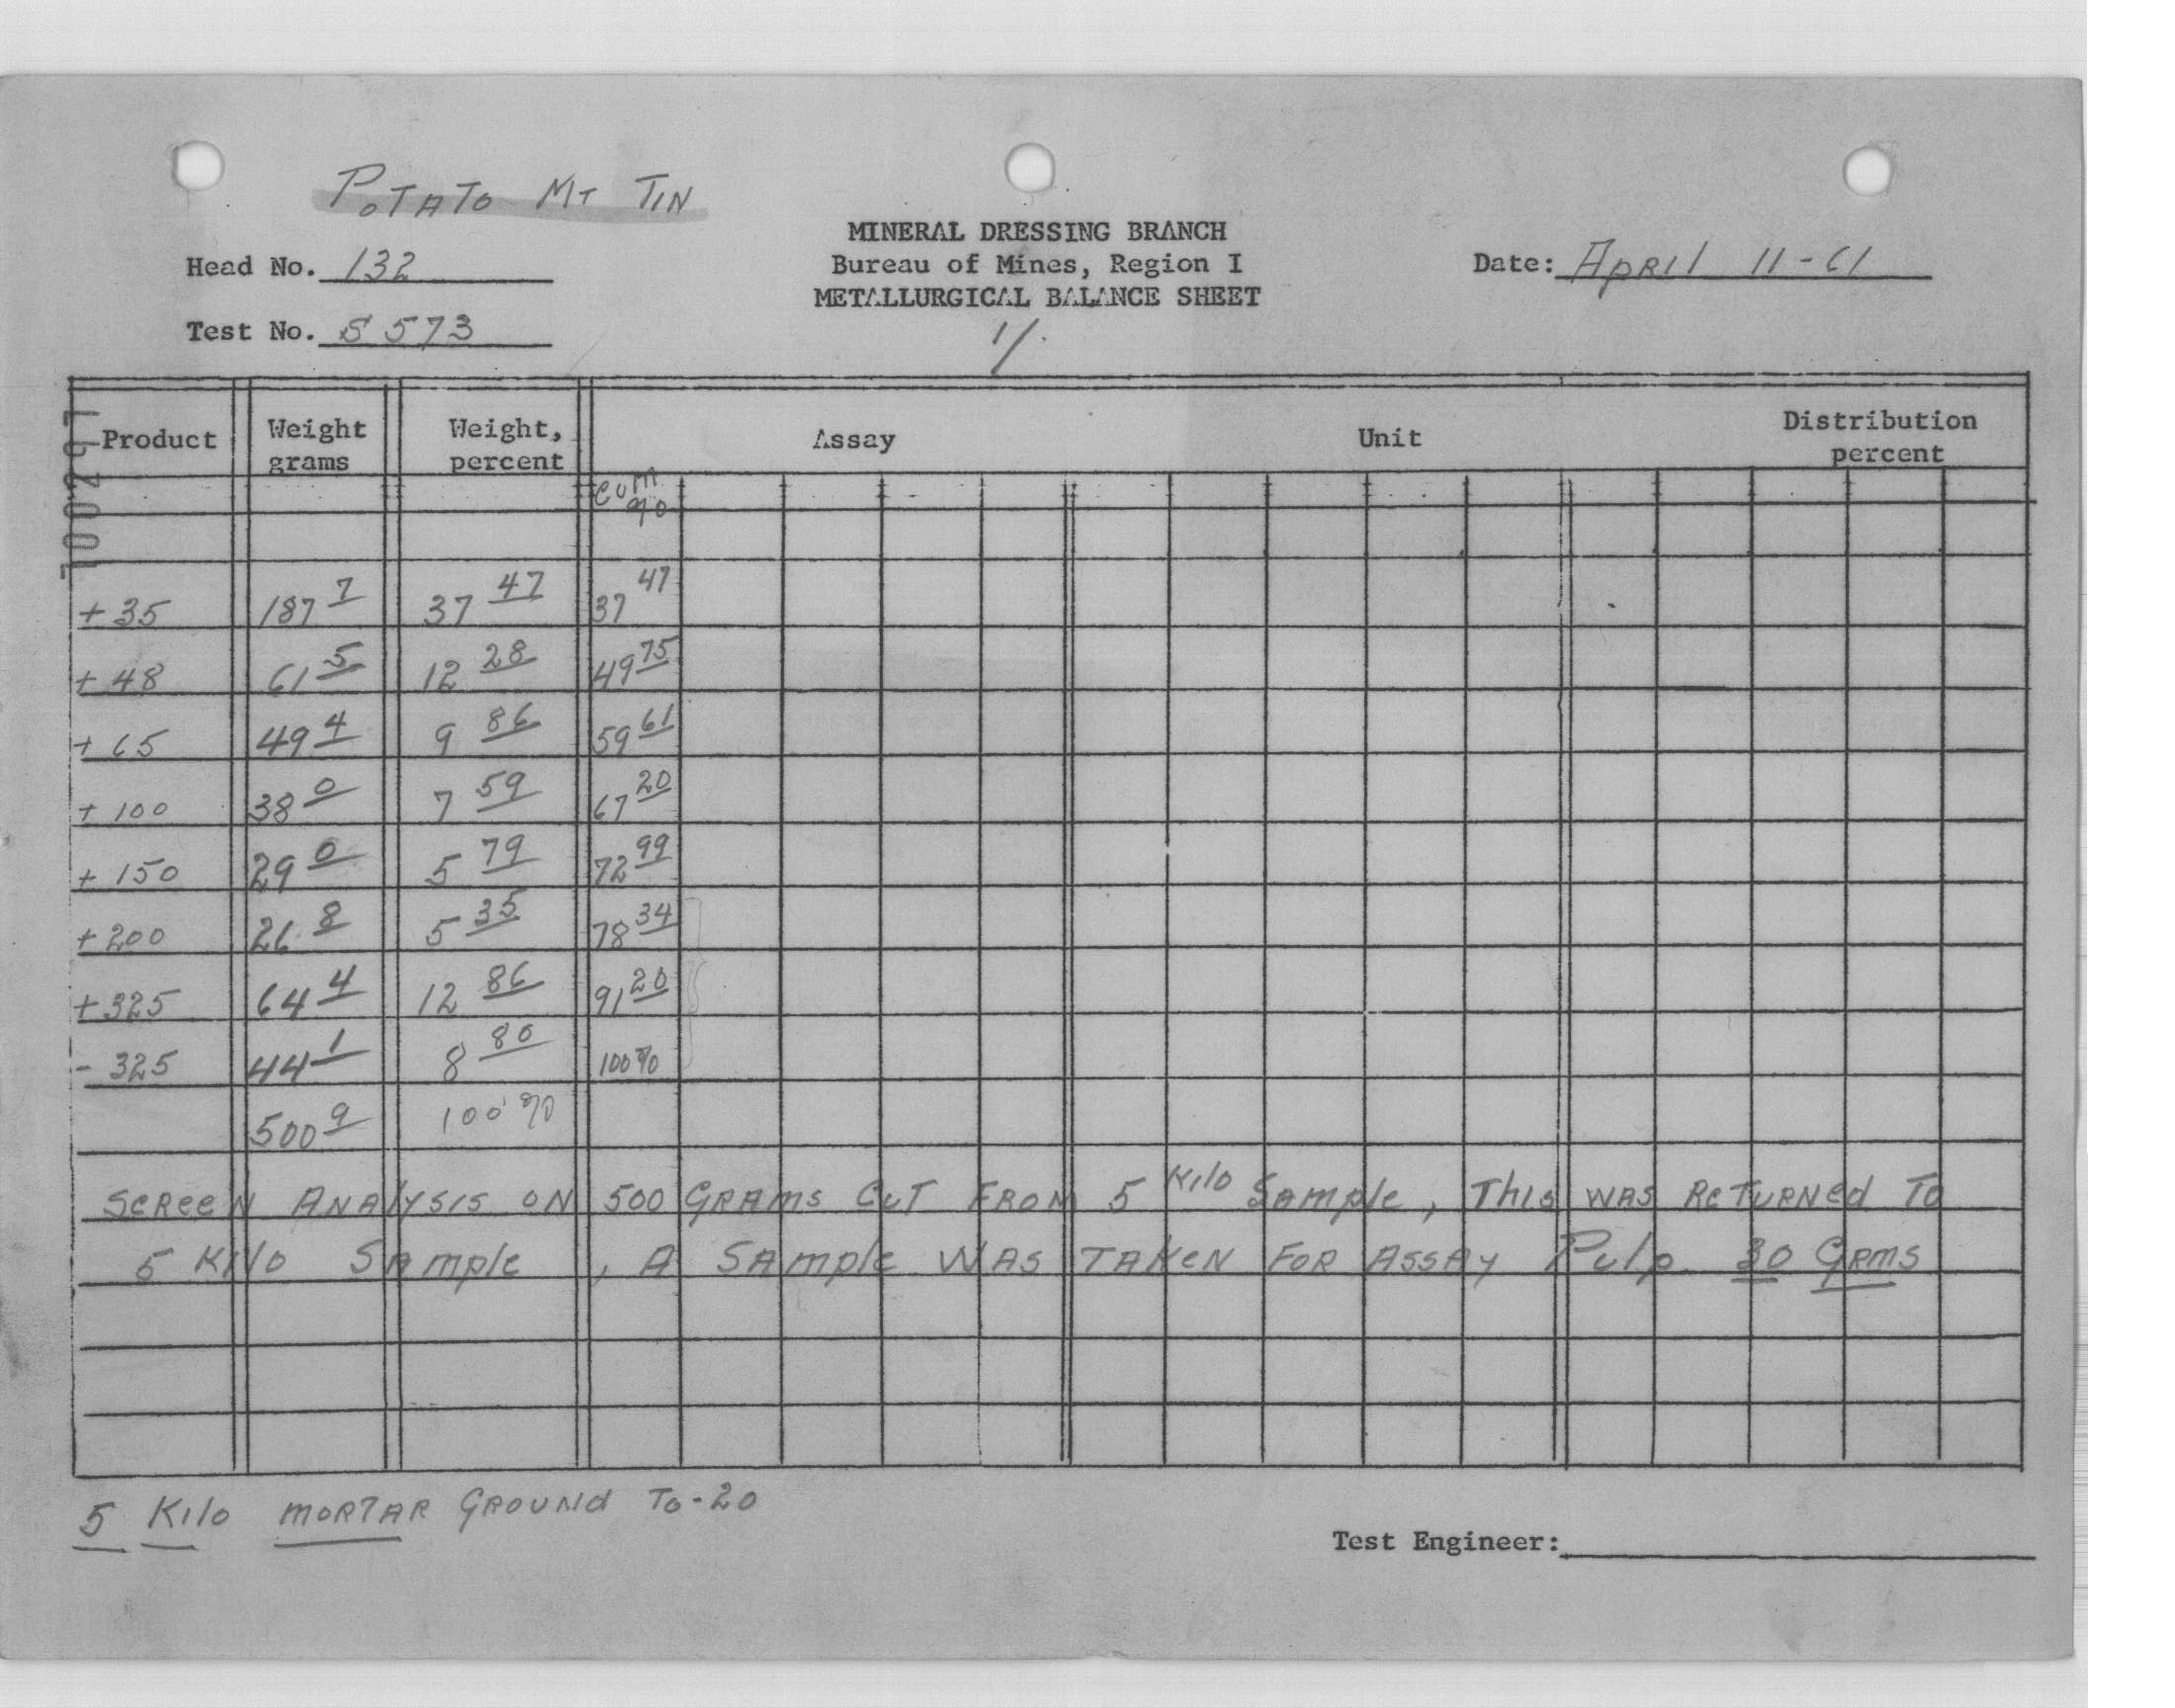 POTATO MT TIN
MINERAL DRESSING BRANCH
Head No. 132 Bureau of Mines, Region I Date: APRIL 11-61
METALLURGICAL BALANCE SHEET
Test No. S 573
1/.
Product Weight grams Weight, percent Assay Unit Distribution percent
CUM %
+35 187 7 37 47 37 47
+48 61 5 12 28 49 75
+65 49 4 9 86 59 61
+100 38 0 7 59 67 20
+150 29 0 5 79 72 99
+200 26 8 5 35 78 34
+325 64 4 12 86 91 20
-325 44 1 8 80 100%
500 9 100%
SCREEN ANALYSIS ON 500 GRAMS CUT FROM 5 Kilo SAMPLE, THIS WAS RETURNED TO
5 KILO SAMPLE, A SAMPLE WAS TAKEN FOR ASSAY Pulp 30 GRMS
5 Kilo MORTAR GROUND TO -20
Test Engineer: